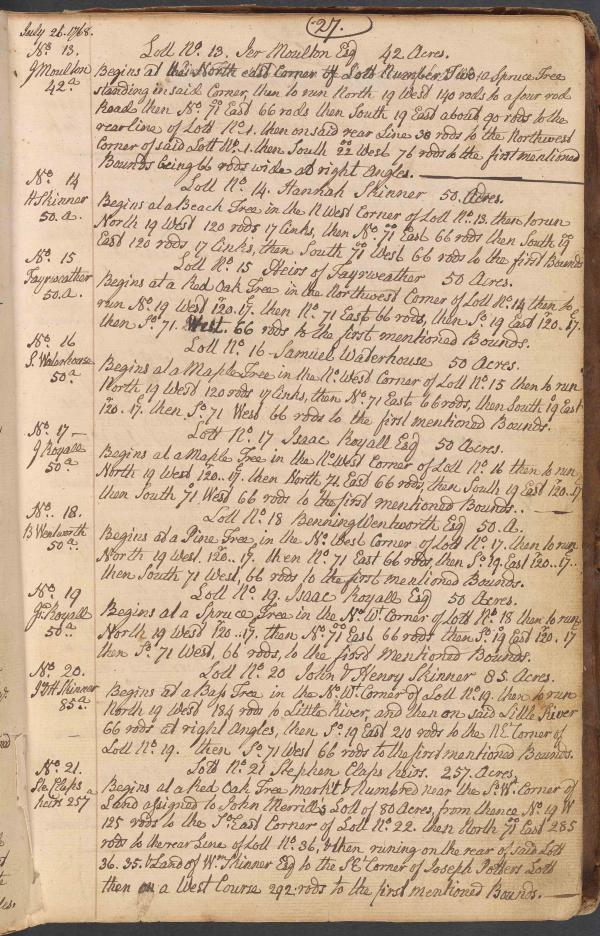 27.
July 26. 1768.
No 13.
J Moulton
42 a
Lott No. 13. Jer Moulton Esq 42 Acres.
Begins at the North east Corner of Lott Number Two, a Spruce Tree
standing in said Corner, then to run North 19 West 140 rods to a four rod
Road then No. 71 East 66 rods then South 19 East about 90 rods to the
rear line of Lott No. 1. then on said rear Line 38 rods to the Northwest
Corner of said Lott No. 1. then South 22 West 76 rods to the first mentioned
Bounds being 66 rods wide at right Angles.
No. 14
H Skinner
50. a.
Lott No. 14. Hannah Skinner 50. Acres.
Begins at a Beach Tree in the N West Corner of Lott No. 13. then to run
North 19 West 120 rods 17 links, then No. 71 East 66 rods then South 19
East 120 rods 17 links, then South 71 West 66 rods to the first Bounds
No. 15
Fayrweather
50. a.
Lott No. 15 Heirs of Fayrweather 50 Acres.
Begins at a Red Oak Tree in the Northwest Corner of Lott No. 14 then to
run No. 19 West 120..17. then No. 71 East 66 rods, then So. 19 East 120..17.
then So. 71. West. 66 rods to the first mentioned Bounds.
No. 16
S. Waterhouse
50 a
Lott No. 16 - Samuel Waterhouse 50 Acres.
Begins at a Maple Tree in the No. West Corner of Lott No. 15 then to run
North 19 West 120 rods 17 links, then No. 71 East 66 rods, then South 19 East
120..17. then So. 71 West 66 rods to the first mentioned Bounds.
No. 17 -
J Royall
50 a
Lott No. 17 Isaac Royall Esq 50 Acres.
Begins at a Maple Tree in the No. West Corner of Lott No. 16 then to run
North 19 West 120..17. then North 71 East 66 rods, then South 19 East 120..17
then South 71 West 66 rods to the first mentioned Bounds..
No. 18.
B Wentworth
50 a.
Lott No. 18 Benning Wentworth Esq 50. A.
Begins at a Pine Tree in the No. West Corner of Lott No. 17. then to run
North 19 West. 120..17. then No. 71 East 66 rods, then So. 19 East 120..17..
then South 71 West, 66 rods to the first mentioned Bounds.
No. 19
Royall
50 a
Lott No. 19. Isaac Royall Esq 50 Acres.
Begins at a Spruce Tree in the No. Wt Corner of Lott No. 18 then to run
North 19 West 120..17. then No. 71 East 66 rods then So. 19 East 120..17
then So. 71 West, 66 rods, to the first Mentioned Bounds.
No. 20.
J & H Skinner
85. a
Lott No. 20 John & Henry Skinner 85. Acres.
Begins at a Bass Tree in the No. Wt Corner of Lott No. 19. then to run
North 19 West 184 rods to Little River, and then on said Little River
66 rods at right Angles, then So. 19 East 210 rods to the N E Corner of
Lott No. 19. then So. 71 West 66 rods to the first mentioned Bounds.
No. 21.
Ste Claps
heirs 257 a
Lott No. 21 Stephen Claps heirs. 257. Acres,
Begins at a Red Oak Tree markt & Numbred near the So. Wt Corner of
Land assigned to John Merrill's Lott of 80 Acres, from thence No. 19 W
125 rods to the So. East Corner of Lott No. 22. then North 71 East 285
rods to the rear Line of Lott No. 36, & then runing on the rear of said Lott
36. 35. & Land of Wm Skinner Esq to the S E Corner of Joseph Potters Lott
then on a West Course 292 rods to the first mentioned Bounds.